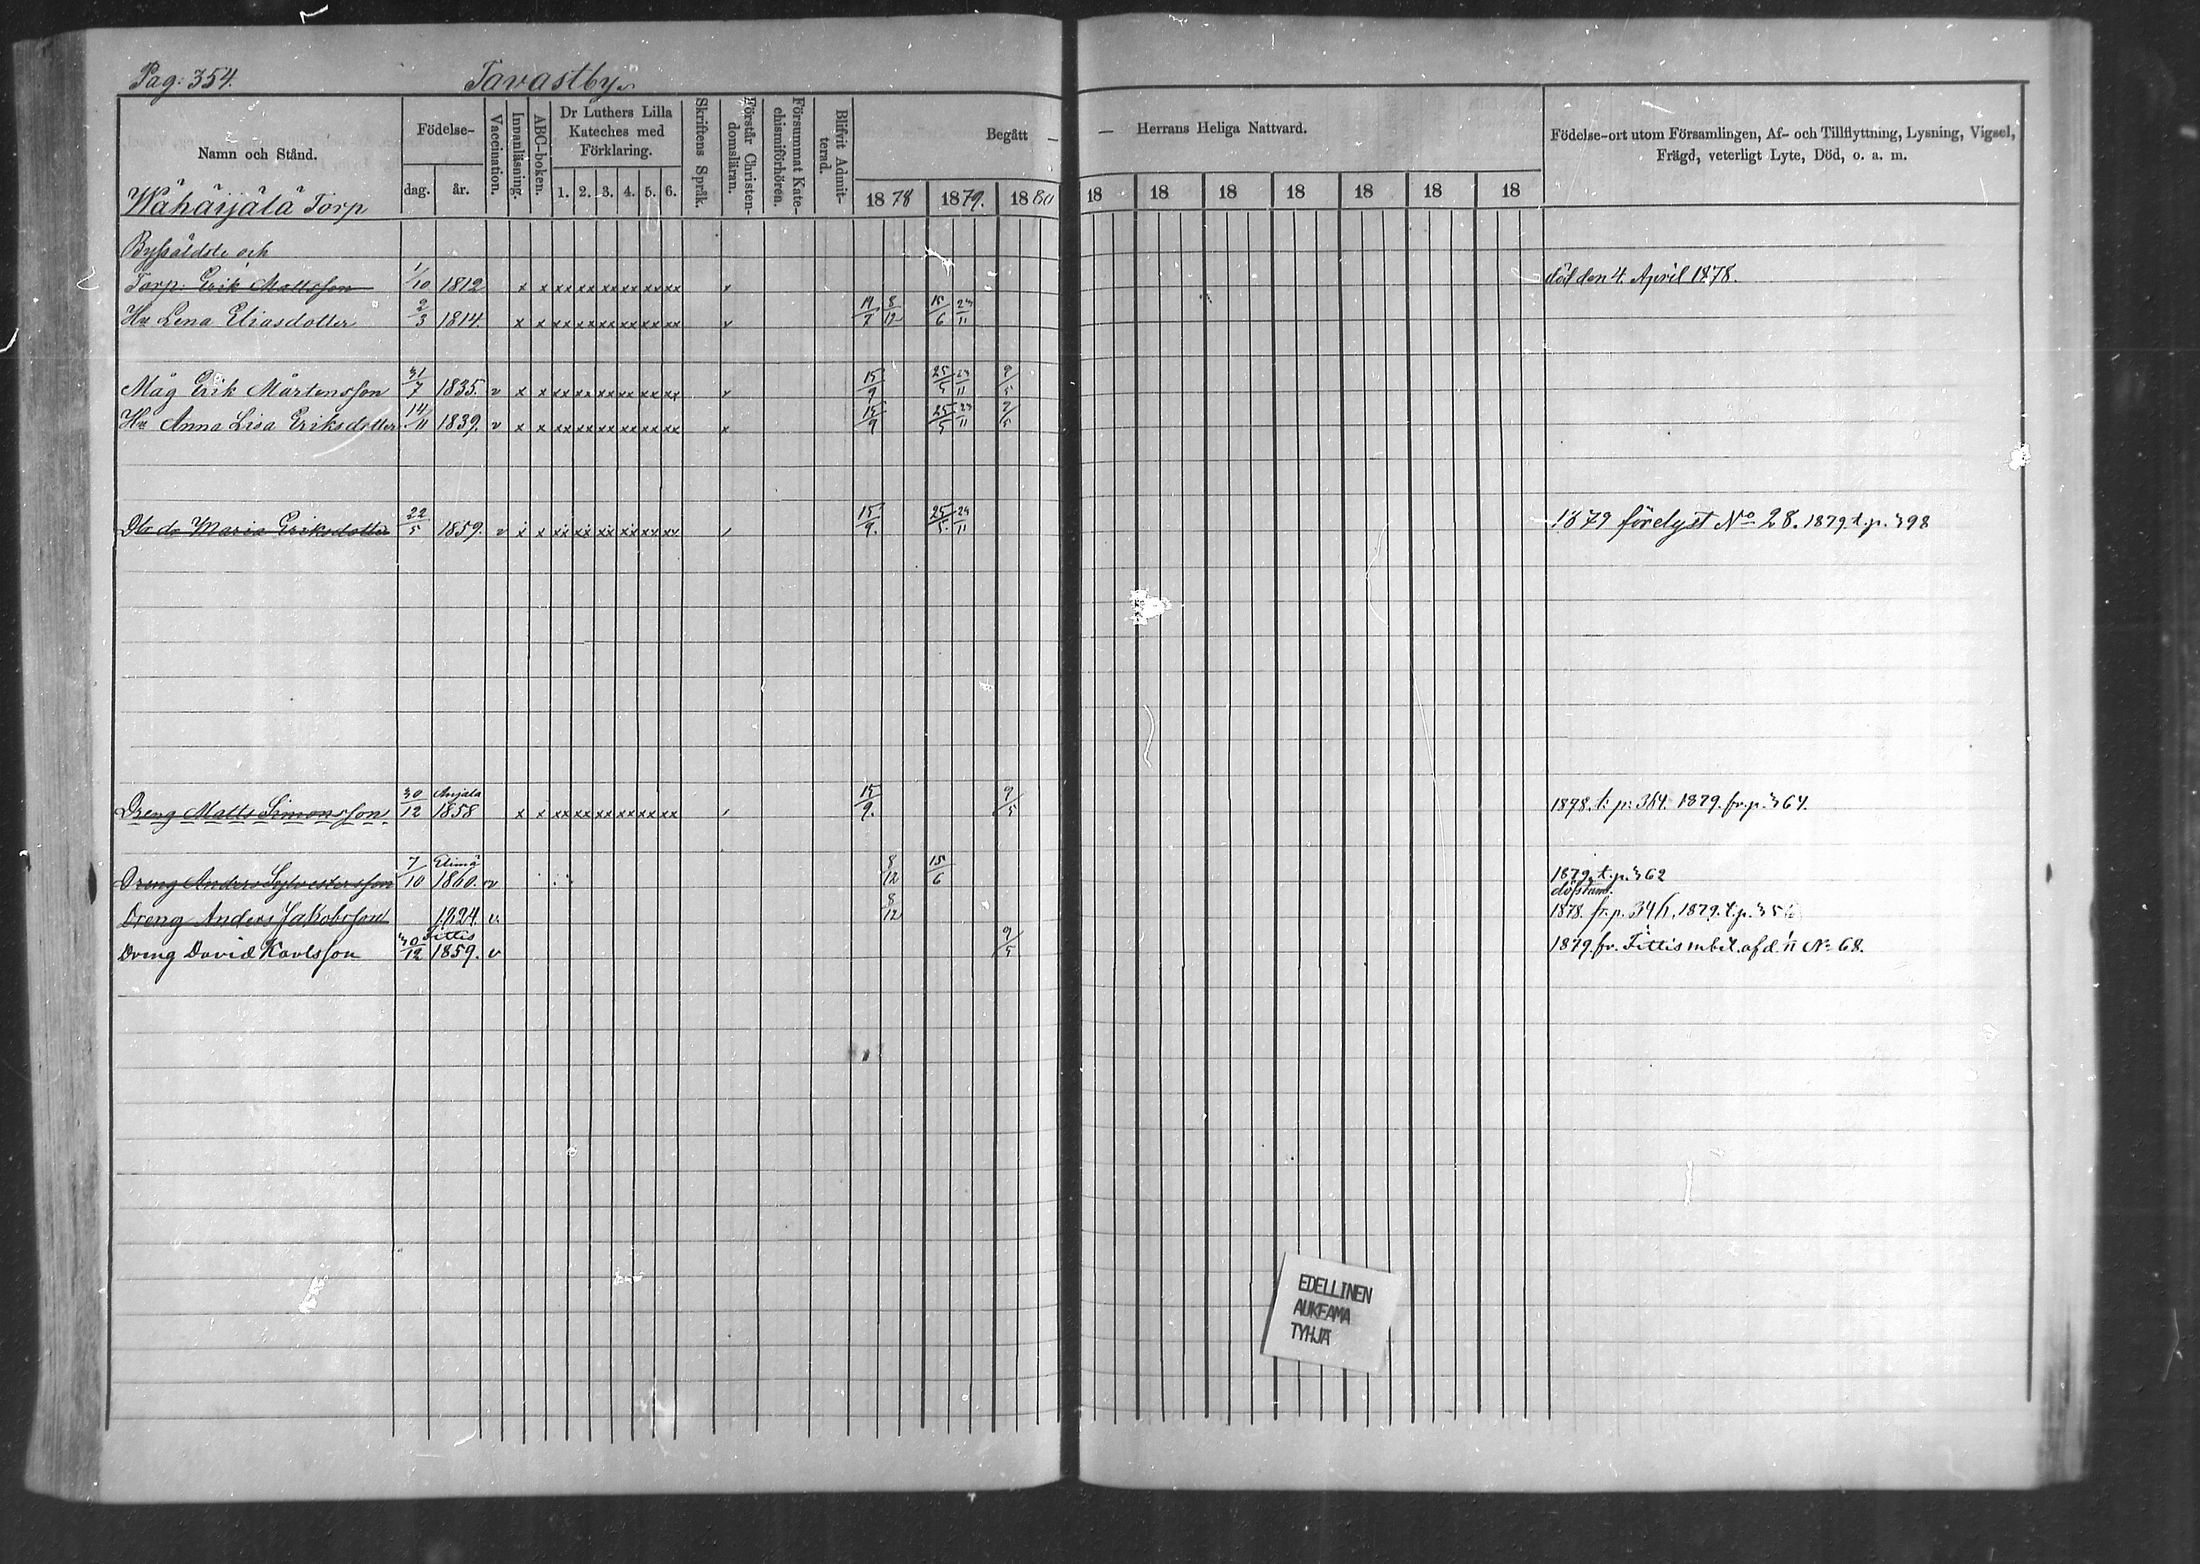 Pag: 354.
Tavastby.
Namn och Stånd.
Födelse-
dag.
år.
Vaccination.
Innanläsning.
ABC-boken.
Dr Luthers Lilla
Kateches med
Förklaring.
1. 2. 3. 4. 5. 6.
Skriftens Språk.
Förstår Christen-
domsläran.
Försummat Kate-
chismiförhören.
Blifvit Admit-
terad.
Begått —
— Herrans Heliga Nattvard.
1878 1879. 1880
18 18 18 18 18 18 18
Födelse-ort utom Församlingen, Af- och Tillflyttning, Lysning, Vigsel,
Frägd, veterligt Lyte, Död, o. a. m.
Wähärjälä Torp
Byssäldste och
Torp: Erik Mattsson 1/10 1812 x x xx xx xx xx xx xx x död den 4. April 1878.
Hu Lena Eliasdotter 2/3 1814. x x xx xx xx xx xx xx x 14/7 8/12 15/6 23/11
Måg Erik Mårtensson 31/7 1835. v x x xx xx xx xx xx xx x 15/9 25/5 23/11 9/5
Hu Anna Lisa Eriksdotter 14/11 1839. v x x xx xx xx xx xx xx x 15/9 25/5 23/11 9/5
Dtr do Maria Eriksdotter 22/5 1859. v x x xx xx xx xx xx xx 15/9. 25/5. 23/11 1879 förelyst No 28. 1879. t. p. 398
Dreng Matts Simonsson 30/12 Anjala 1858 x x xx xx xx xx xx xx 15/9. 9/5 1878. t. p. 354. 1879. fr. p. 364.
Dreng Anders Sylvestersson 7/10 Elimä 1860. v 8/12 15/6 1879. t. p. 362
döfstum.
Dreng Anders Jakobsson 1824. v. 8/12 1878. fr. p. 341. 1879. t. p. 356
Dreng David Karlsson 30/12 Tittis 1859. v 9/5 1879. fr. Tittis m bet. af d. 11 No 68.
EDELLINEN
AUKEAMA
TYHJÄ